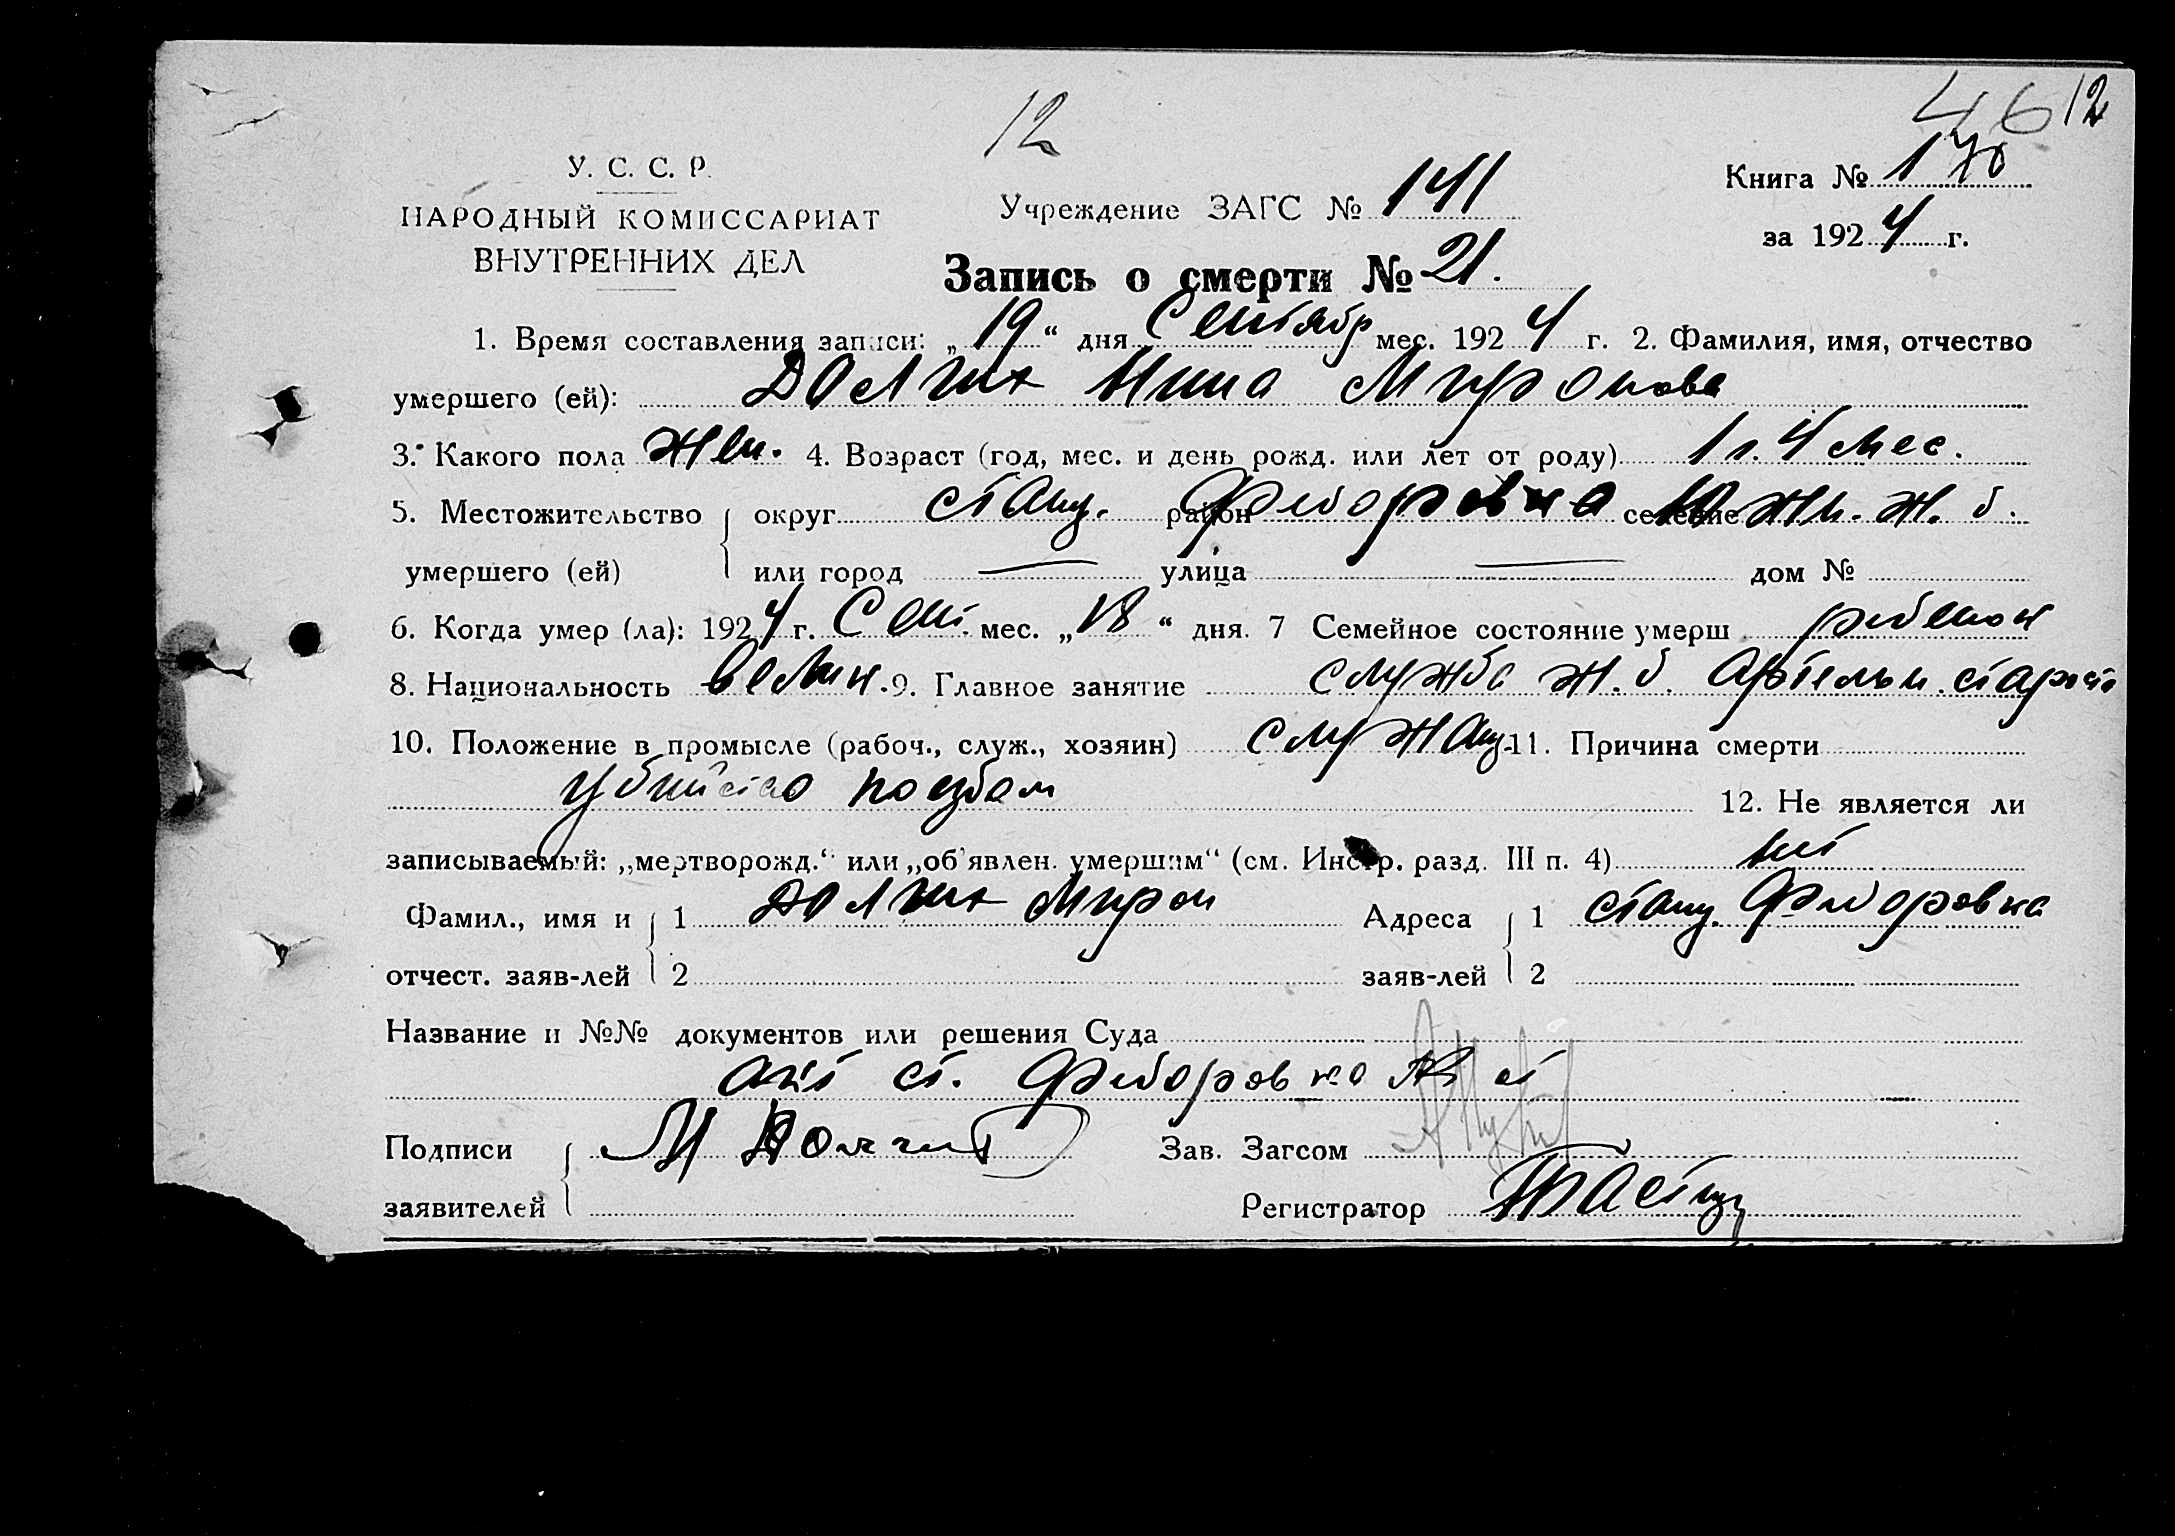 12
46 12
У. С. С. Р.
НАРОДНЫЙ КОМИССАРИАТ
ВНУТРЕННИХ ДЕЛ
Учреждение ЗАГС № 141
Книга № 170
за 1924 г.
Запись о смерти № 21.
1. Время составления записи: „19“ дня Сентябр мес. 1924 г. 2. Фамилия, имя, отчество
умершего (ей): Долгих Нина Миронова
3. Какого пола жен. 4. Возраст (год, мес. и день рожд. или лет от роду) 1 г. 4 мес.
5. Местожительство округ станц. район Федоровка селение Южн. ж. д.
умершего (ей) или город — улица — дом №
6. Когда умер (ла): 1924 г. Сент. мес. „18“ дня. 7 Семейное состояние умерш ребенок
8. Национальность велик. 9. Главное занятие служба ж. д. Артельн. староста
10. Положение в промысле (рабоч., служ., хозяин) служащ. 11. Причина смерти
убийство поездом 12. Не является ли
записываемый: „мертворожд.“ или „об'явлен. умершим“ (см. Инстр. разд. III п. 4) нет
Фамил., имя и 1 Долгих Мирон Адреса 1 станц. Федоровка
отчест. заяв-лей 2 заяв-лей 2
Название и №№ документов или решения Суда
акт ст. Федоровка
Подписи М Долгих Зав. Загсом
заявителей Регистратор